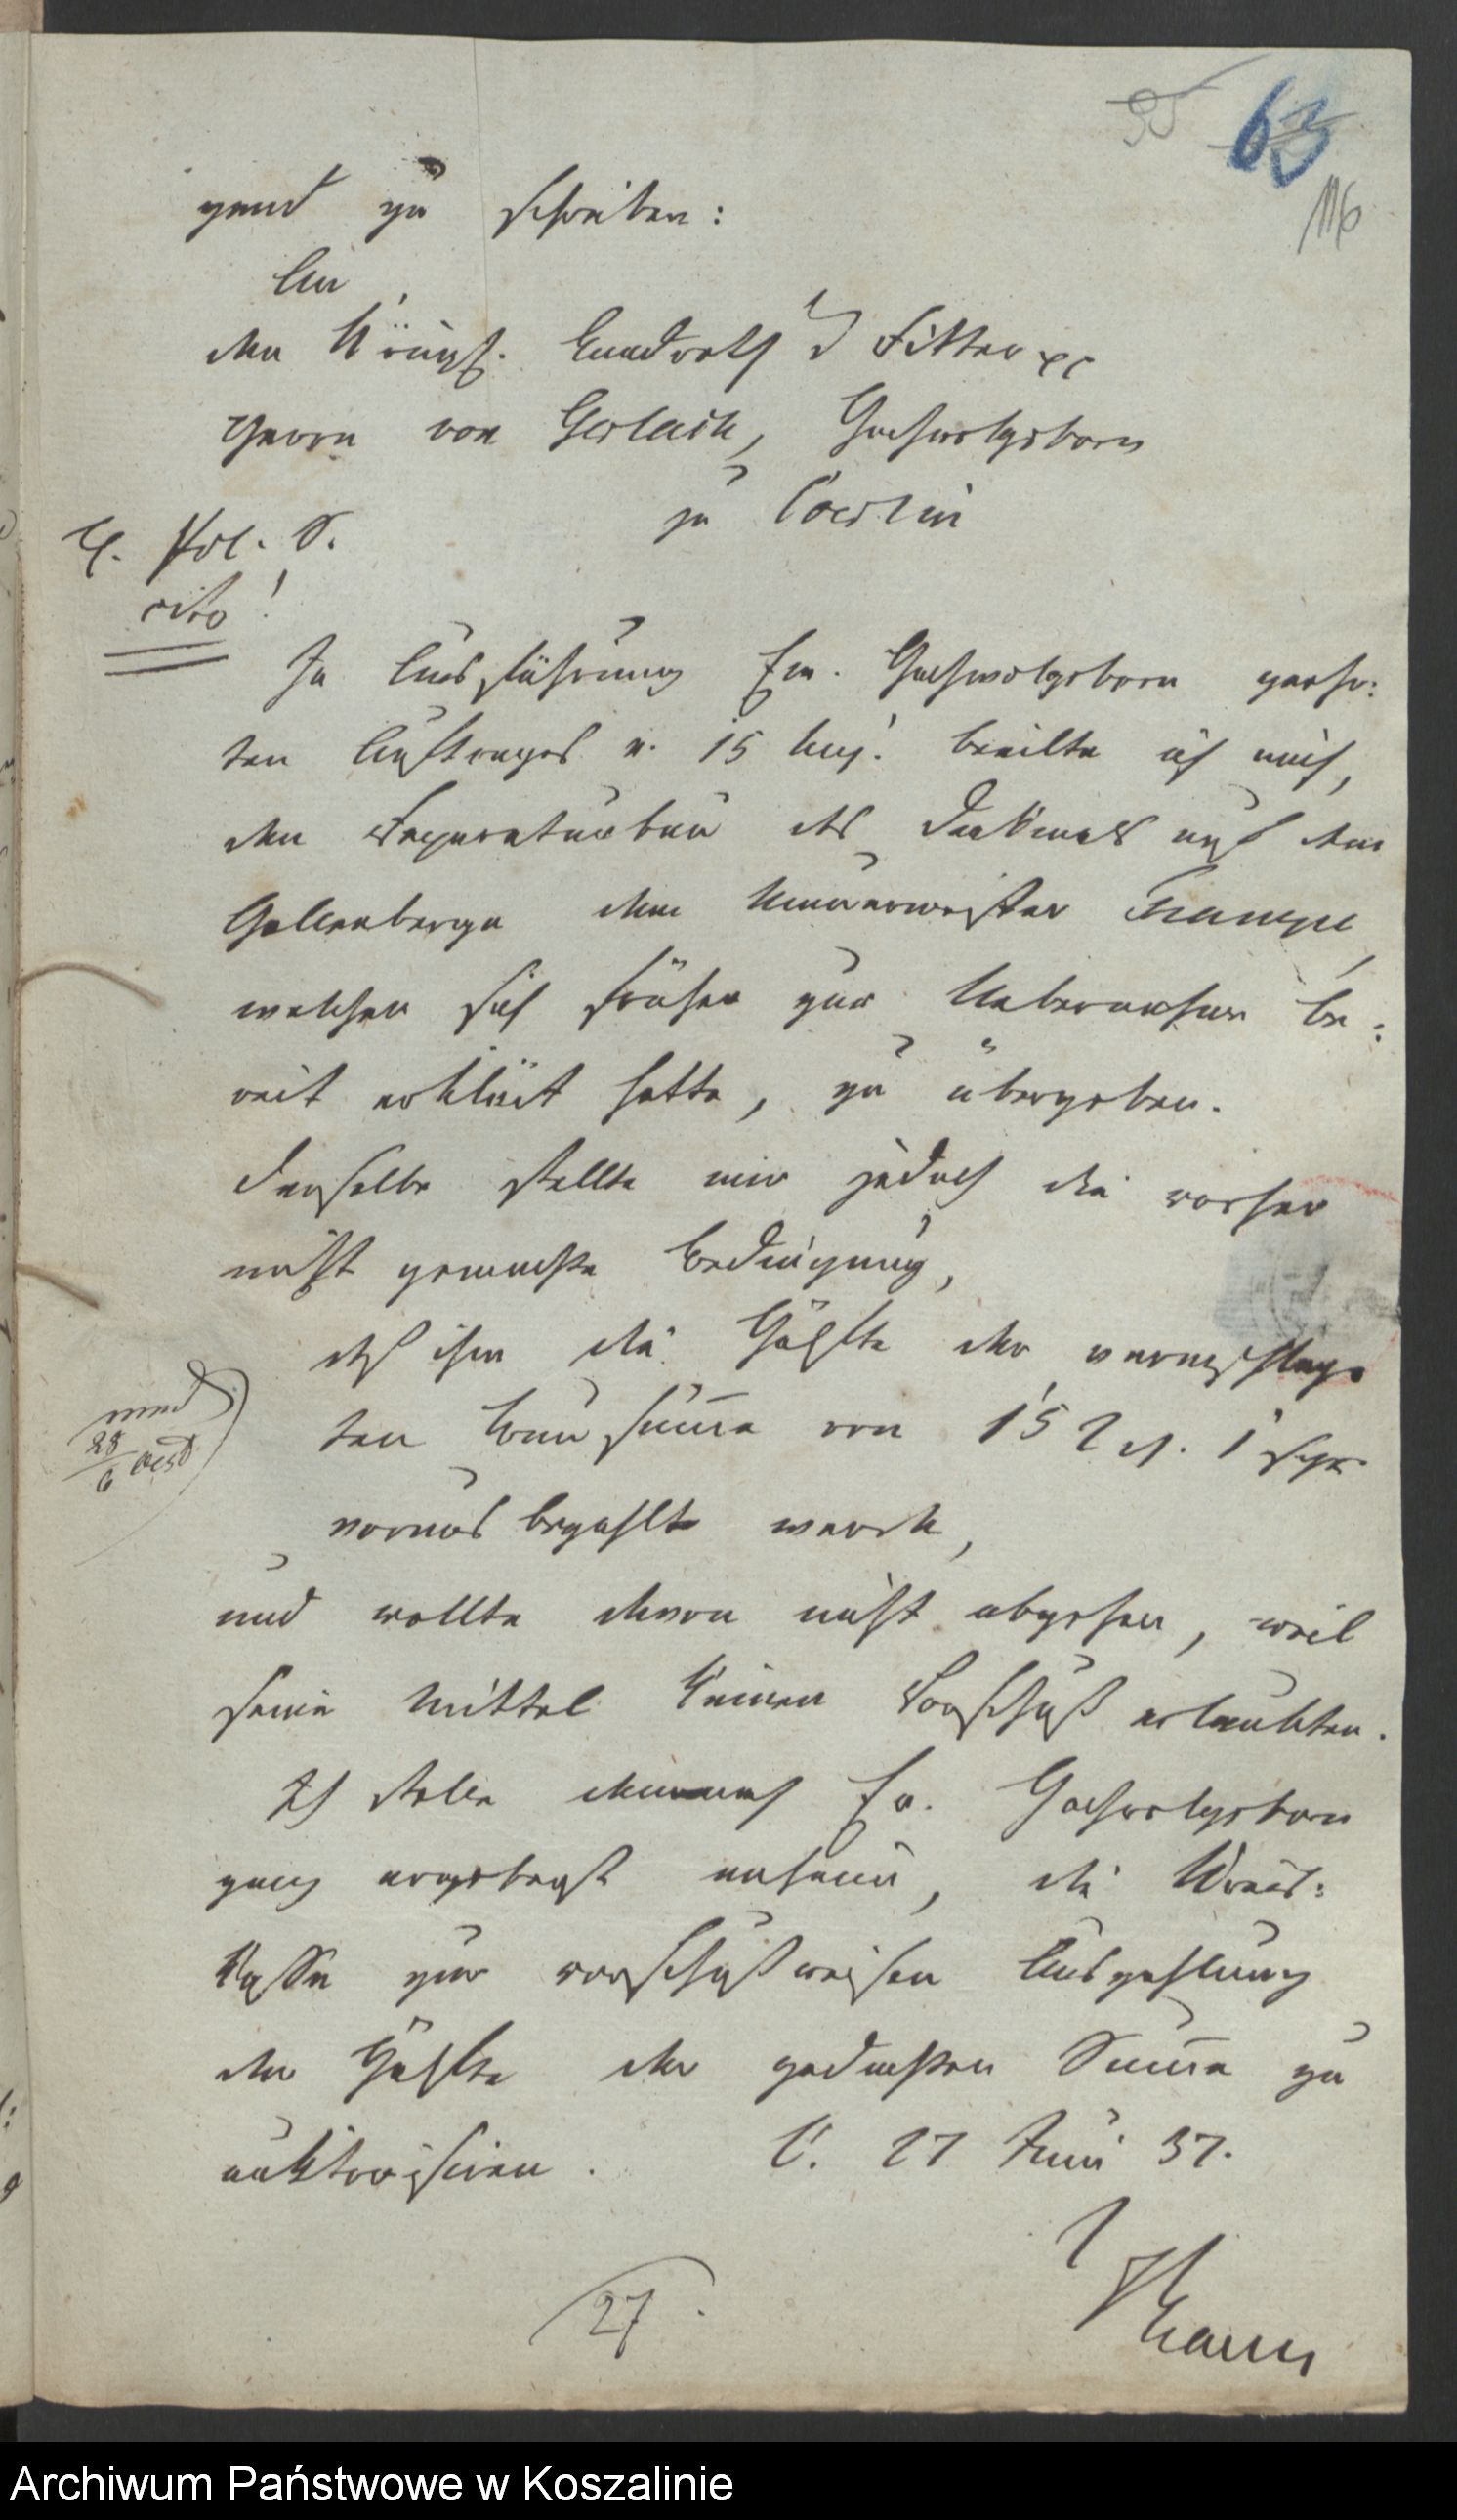 63
116
gend zu schreiben:
An
den Königl. Landrath u Ritter pp
Herrn von Gerlach, Hochwohlgeborn
zu Coeslin
Pol. S.
cito!
In Ausführung Ew. Hochwohlgeborn geehr:
ten Auftrages v. 15 huj. beeilte ich mich,
den Reparaturbau des Denkmals auf dem
Gollenberge dem Maurermeister
welcher sich früher zur Uebernahme be:
reit erklärt hatte, zu übergeben.
Derselbe stellte mir jedoch die vorher
nicht gemachte Bedingung,
daß ihm die Hälfte der veranschlag
ten Bausumma von 15 rl. 1 sgr.
voraus bezahlt werde,
und wollte davon nicht abgehen, weil
seine Mittel keinen Vorschuß erlaubten.
Ich stelle demnach Ew. Hochwohlgeborn
ganz ergebenst anheim, die Kreis:
Kasse zur vorschußweisen Auszahlung
der Hälfte der gedachten Summa zu
auktorisiren. C. 27 Juni 37.
27.
Archiwum Państwowe w Koszalinie